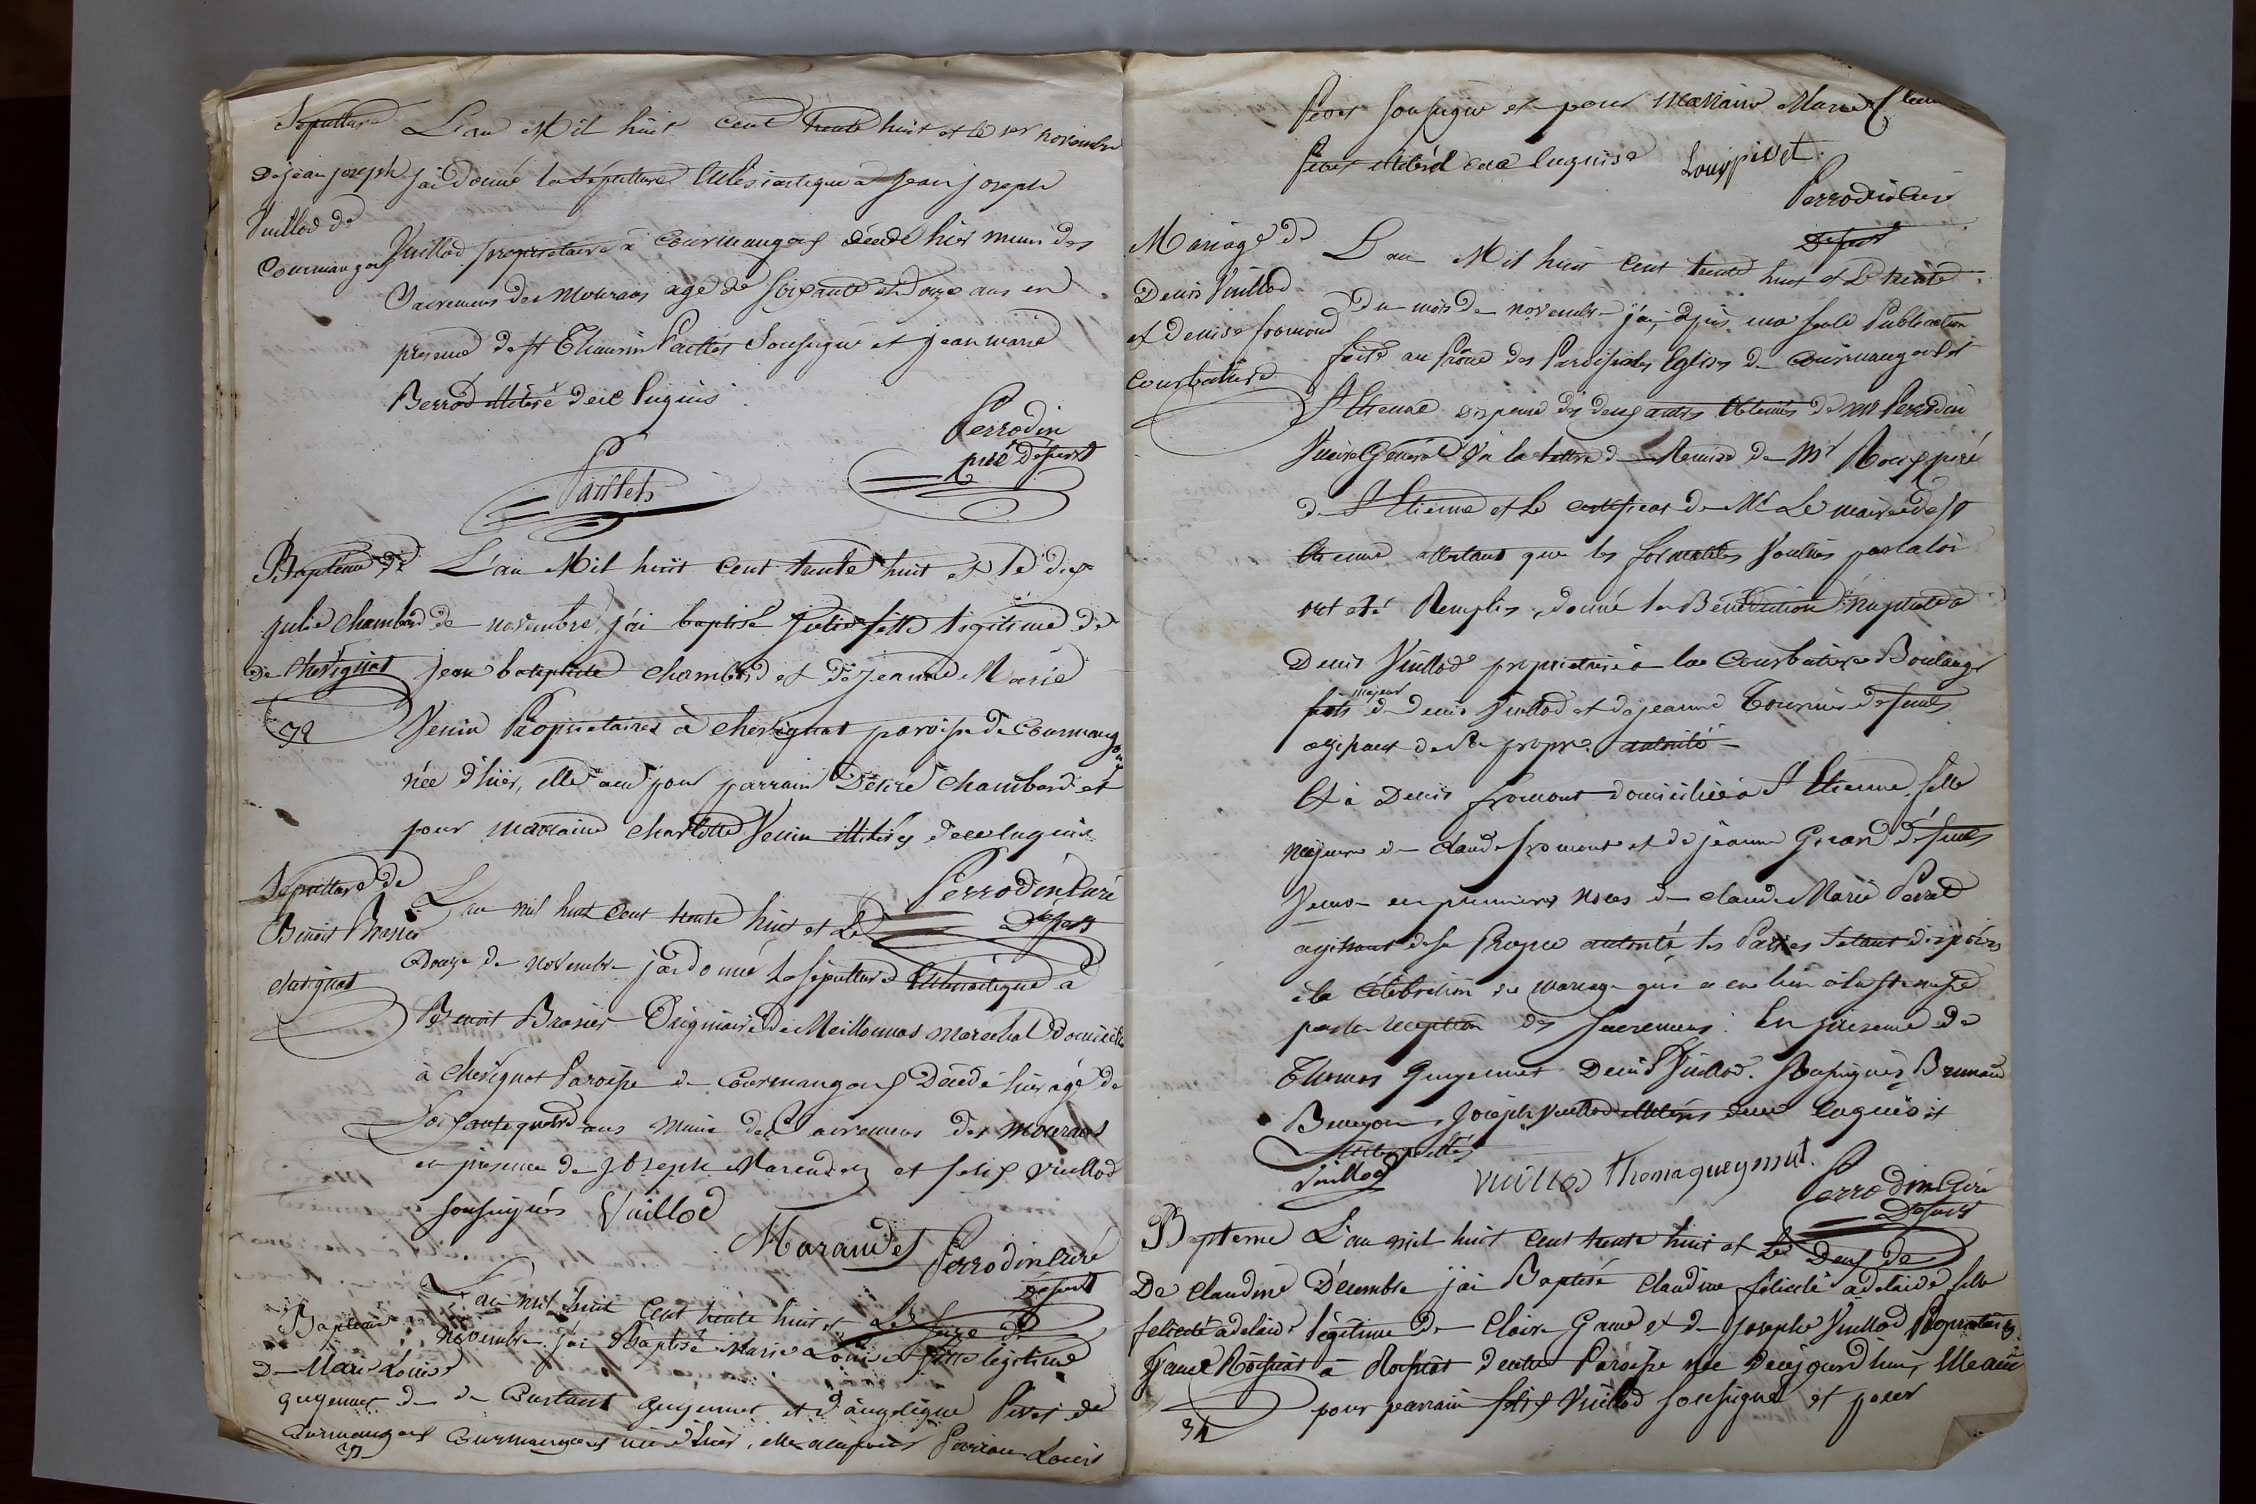 Sépulture
De jean joseph
Vuillod de
Courmangoux
L'an Mil huit cent trente huit et le 1er novembre
j'ai donné la sépulture Eclésiastique a jean joseph
Vuillod propriétaire à Courmangoux décédé hier muni des
Sacremens des mourans agé de soixante et douze ans en
presence de Paillet Soussigné et jean marie
Berrod illitéré de ce requis
Paillet
Perrodin
Baptême de
julie chambard
de chevignat
32
L'an Mil huit cent trente huit et le dix
de novembre j'ai baptisé julie fille légitime de
jean batiptiste chambard et de jeanne Marie
Venin Propriétaires à chevignat paroisse de Courmangoux
née d'hier, elle a eu pour parrain Désiré chambard et
pour marraine charlotte Venin illitérés de ce enquis
Perrodin Curé
Sépulture de
Benoit Brasier
chevignat
L'an mil huit cent trente huit et le
Douze de novembre j'ai donné la sépulture Eclésiastique à
Benoit Brasier Originaire de Meillonnas marechal domicilié
à chevignat Paroisse de Courmangoux Décédé hier agé de
Soixante quatre ans muni des Sacremens des mourans
en présence de joseph Marandet et felix Vuillod
soussignés Vuillod
Marandet
Perrodin Curé
Baptême
De Marie Louise
guyennet de
Courmangoux
33
L'an mil huit cent trente huit et le Seize de
novembre j'ai Baptisé Marie Louise fille légitime
de Constant guyennet et d'angélique Pivet de
Courmangoux née d'hier, elle a eu pour Parrain Louis
Pivet soussigné et pour marraine Marie
Pivet illitéré de ce enquise Louis pivet
Perrodin Curé
Mariage de
Denis Vuillod
et Denise fromond
Courbatière
L'an Mil huit cent trente huit et le trente
du mois de novembre j'ai, après une seule Publication
faite au Prône des Paroissiales Eglises de Courmangoux et
St Etienne dispense des deux autres obtenues de Mr Perrodin
Vicaire Général Vu la lettre de Remise de Mr Roux curé
de St Etienne et le certificat de Mr Le maire de St
Etienne attestant que les formalités Voulues par la loi
ont été Remplies, donné la Bénédiction Nuptiale à
Denis Vuillod propriétaire à la Courbatière Boulanger
fils majeur de denis Vuillod et de jeanne Tournier défunts
agissant de Sa propre autorité
Et à Denise fromont domiciliée à St Etienne fille
majeure de claude fromont et de jeanne Girard défunts
Veuve en premières noces de claude Marie Pévet
agissant de sa Propre autorité, les Parties s'étant disposées
à la célébration du mariage qui a eu lieu à la ste messe
par la réception des Sacremens. En présence de
Thomas Guyennet Denis Vuillod. soussignés,
joseph Vuillod illitérés de ce enquis
Vuillod
Vuillod Thomas gueynnet.
Perrodin Curé
Baptême
De Claudine
felicité adelaide
Rosset
34
L'an mil huit cent trente huit et Le Deux de
Décembre j'ai Baptisé Claudine félicité adelaide fille
légitime de Claire Game et de Joseph Vuillod Propriétaires
à Rosset de cette Paroisse née D'aujourd'hui, Elle a eu
pour parrain felix Vuillod soussigné et pour